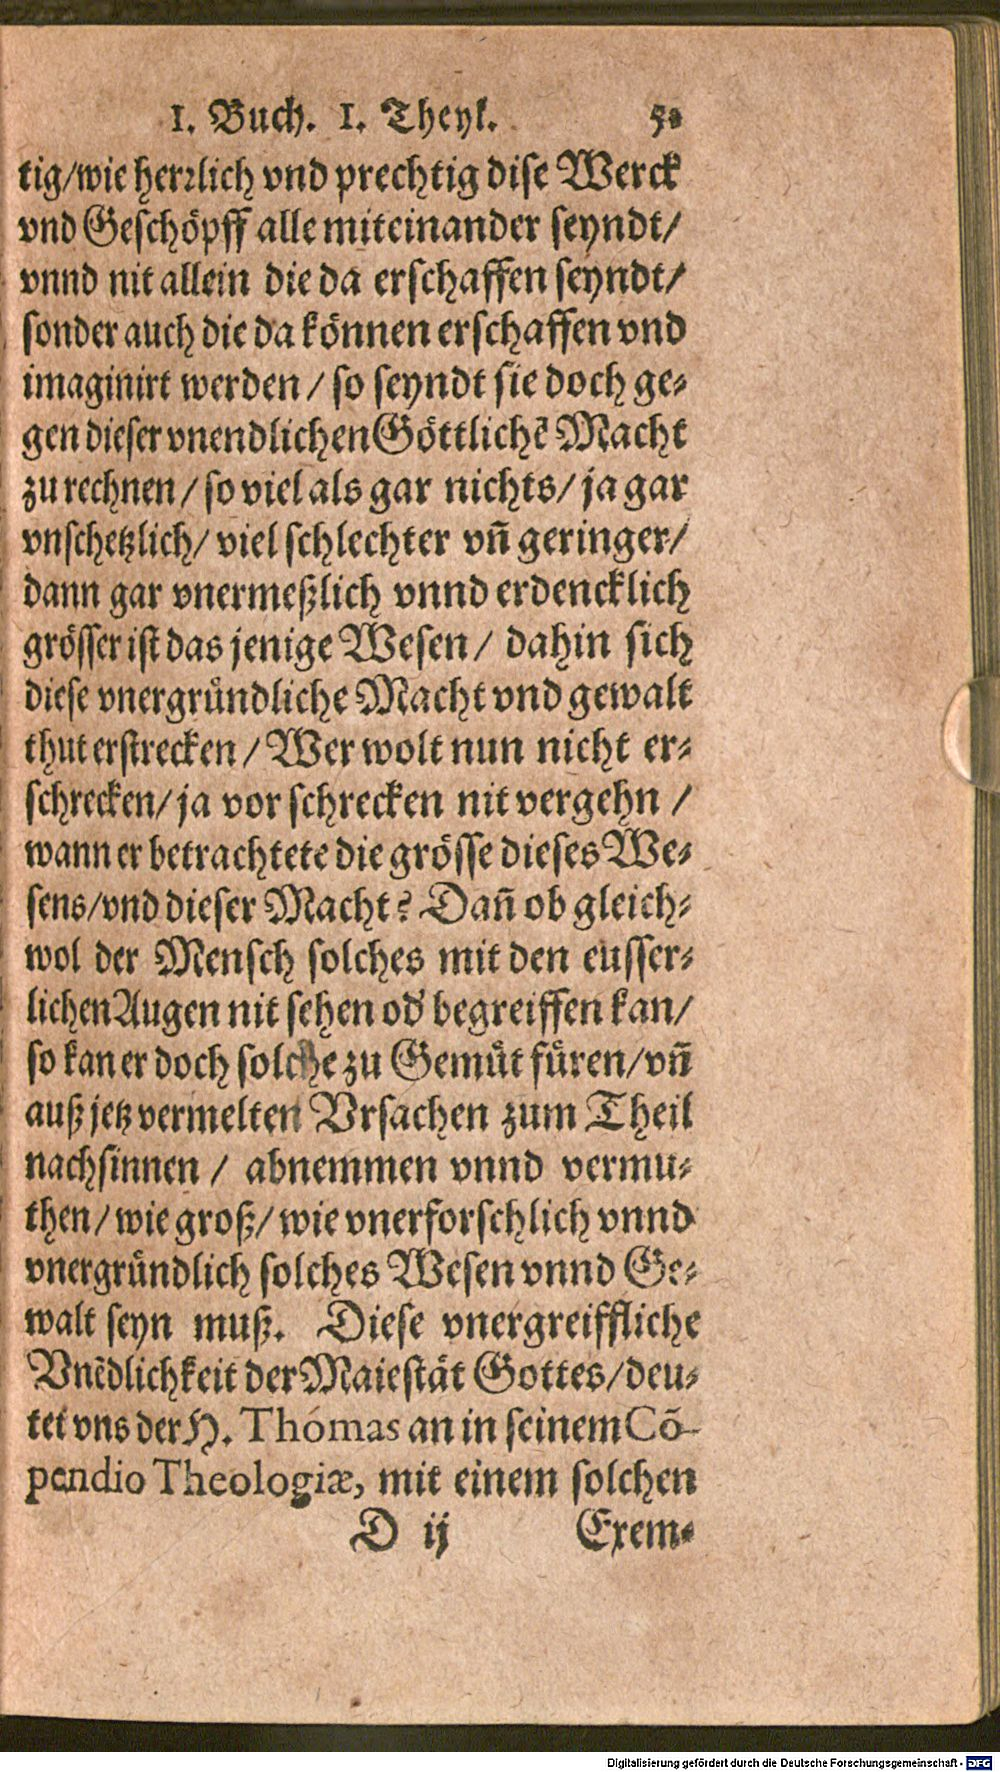 1. Buch. 1. Theyl.
tig/wie herꝛlich vnd prechtig dise Werck
vnd Geschöpff alle miteinander seyndt/
vnnd nit allein die da erschaffen seyndt/
sonder auch die da können erschaffen vnd
imaginirt werden / so seyndt sie doch ge-
gen dieser vnendlichen Göttlichẽ Macht
zu rechnen / so viel als gar nichts / ja gar
vnschetzlich / viel schlechter vñ geringer /
dann gar vnermeßlich vnnd erdencklich
grösser ist das jenige Wesen / dahin sich
diese vnergründliche Macht vnd gewalt
thut erstrecken / Wer wolt nun nicht er-
schrecken / ja vor schrecken nit vergehn /
wann er betrachtete die grösse dieses We-
sens/vnd dieser Macht? Dañ ob gleich-
wol der Mensch solches mit den eusser-
lichen Augen nit sehen od' begreiffen kan/
so kan er doch solche zu Gemüt füren/vñ
auß jetz vermelten Vrsachen zum Theil
nachsinnen / abnemmen vnnd vermu-
then / wie groß / wie vnerforschlich vnnd
vnergründlich solches Wesen vnnd Ge-
walt seyn muß. Diese vnergreiffliche
Vnẽdlichkeit der Maiestät Gottes/deu-
tet vns der H. Thomas an in seinem Cõ-
pendio Theologiæ, mit einem solchen
D ij Exem-
Digitalisierung gefördert durch die Deutsche Forschungsgemeinschaft - DFG